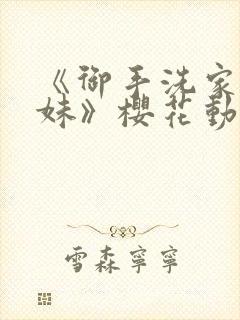 《御手洗家
妹》櫻花動
雪森寧寧